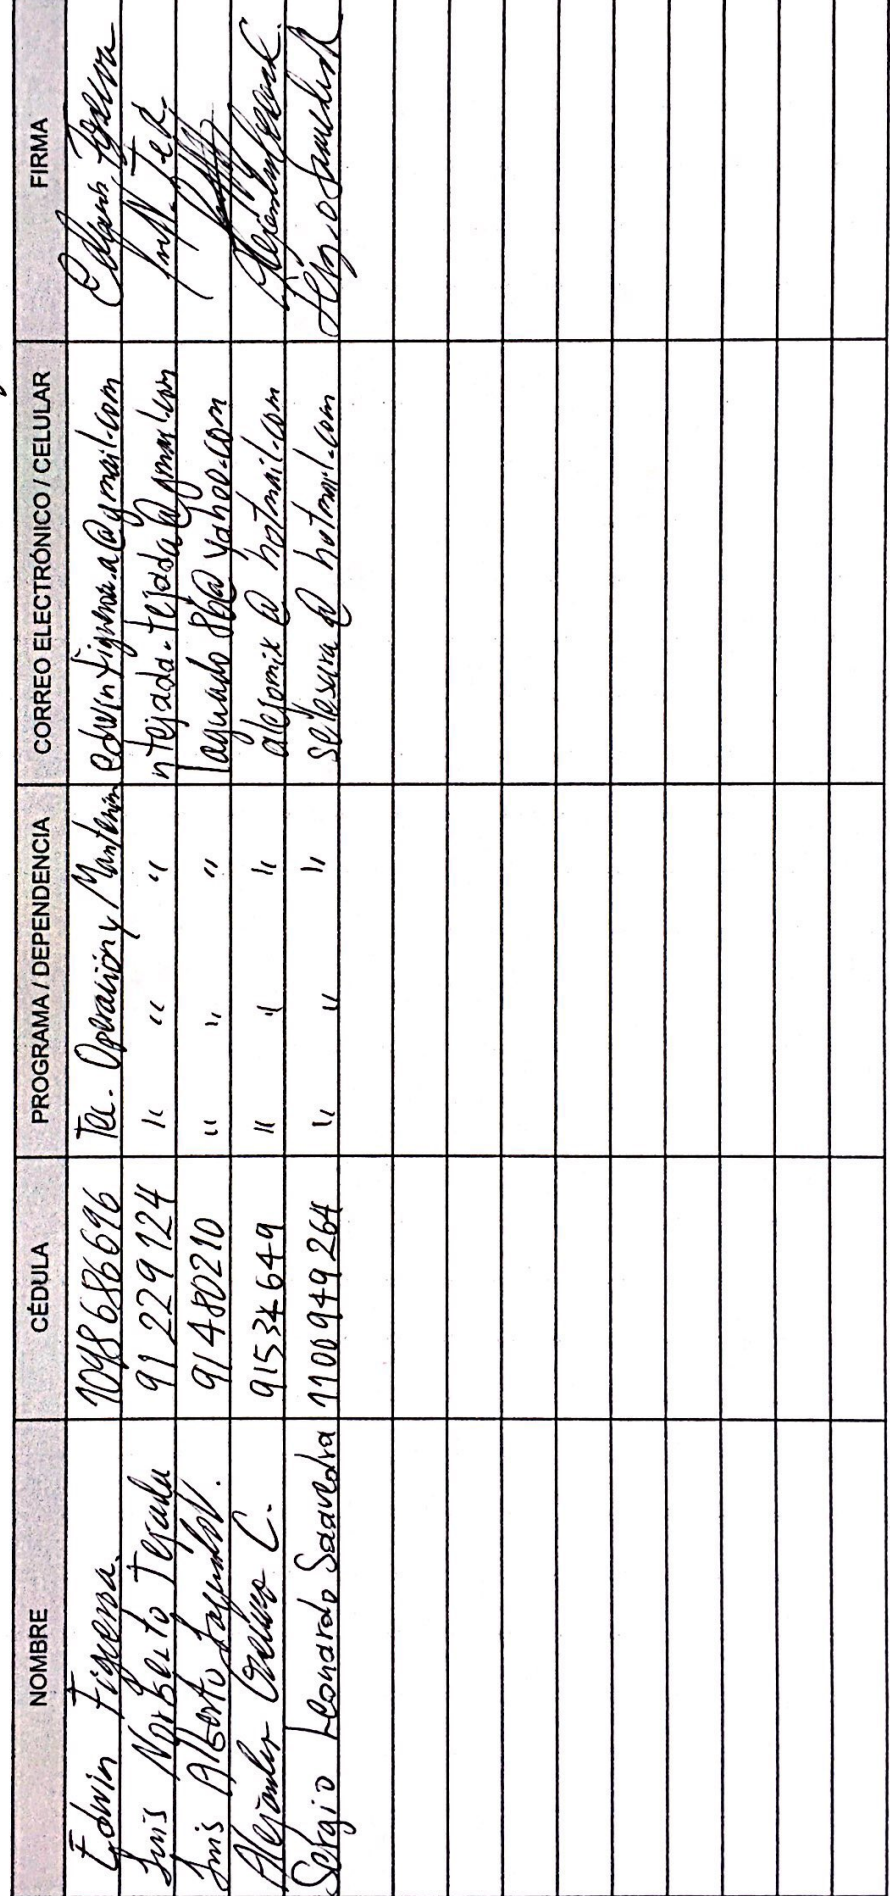 NOMBRE CÉDULA PROGRAMA / DEPENDENCIA CORREO ELECTRÓNICO / CELULAR FIRMA
Edwin Figueroa. 1098686696 Tec. Operación y Mantenim edwinfigueroa.a@gmail.com Edwin Figueroa
Luis Norberto Tejada 91229124 " " " ntejada.tejada@gmail.com
Luis Alberto Laguado V. 91480210 " " " laguado86@yahoo.com
Alejandro C. 91534649 " " " alejomix@hotmail.com
Sergio Leonardo Saavedra 1100949264 " " " selesara@hotmail.com Sergio Saavedra